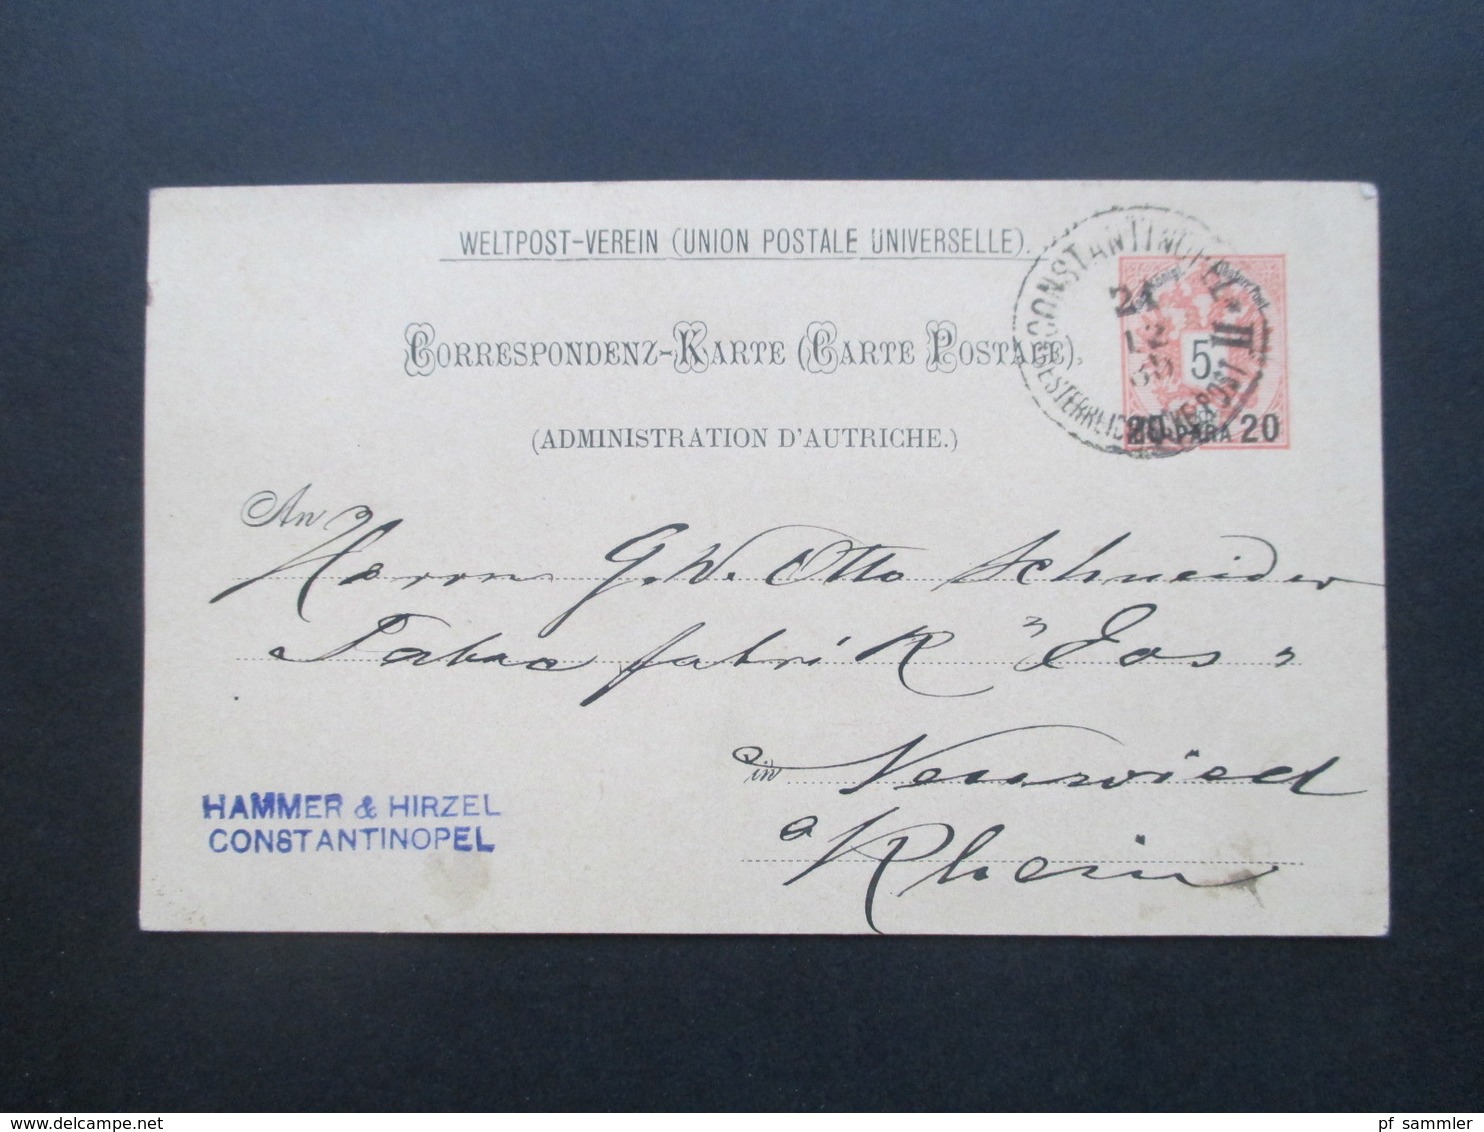 WELTPOST-VEREIN (UNION POSTALE UNIVERSELLE).
CORRESPONDENZ-KARTE (CARTE POSTALE),
(ADMINISTRATION D'AUTRICHE.)
CONSTANTINOPEL * II
21
12
OESTERREICHISCHE POST
5
20 PARA 20
An
Herrn G. W. Otto Schneider
Tabac fabrik "Eos"
in Neuwied
a Rhein
HAMMER & HIRZEL
CONSTANTINOPEL
www.delcampe.net
pf_sammler